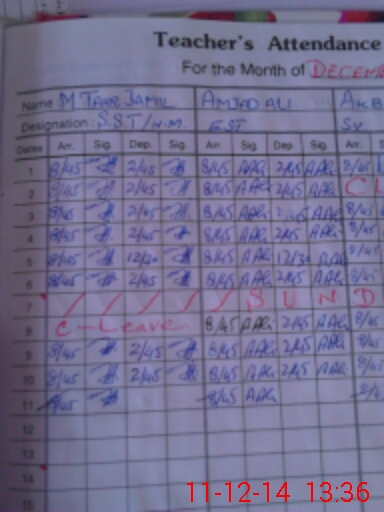 Teacher's Attendance
For the Month of DECEMB
Name M TAHIR JAMIL AMJAD ALI AKB
Designation: S.S.T/H.M. EST
Dates Arr. Sig. Dep. Sig. Arr. Sig. Dep. Sig. Arr. S
1 8/45 2/45 8/45 AAli 2/45 AAli 8/45
2 8/45 2/45 8/45 AAli 2/45 AAli C L
3 8/45 2/45 8/45 AAli 2/45 AAli 8/45
4 8/45 2/45 8/45 AAli 2/45 AAli 8/45
5 8/45 12/30 8/45 AAli 12/30 AAli 8/45
6 8/45 2/45 8/45 AAli 2/45 AAli 8/45
7 / / / / / S U N D
8 C-Leave 8/45 AAli 2/45 AAli 8/45
9 8/45 2/45 8/45 AAli 2/45 AAli 8/45
10 8/45 2/45 8/45 AAli 2/45 AAli 8/45
11 8/45 8/45 AAli
12
13
14
15
11-12-14 13:36